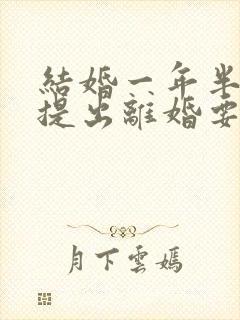 結婚一年半
提出離婚要
月下雲嫣